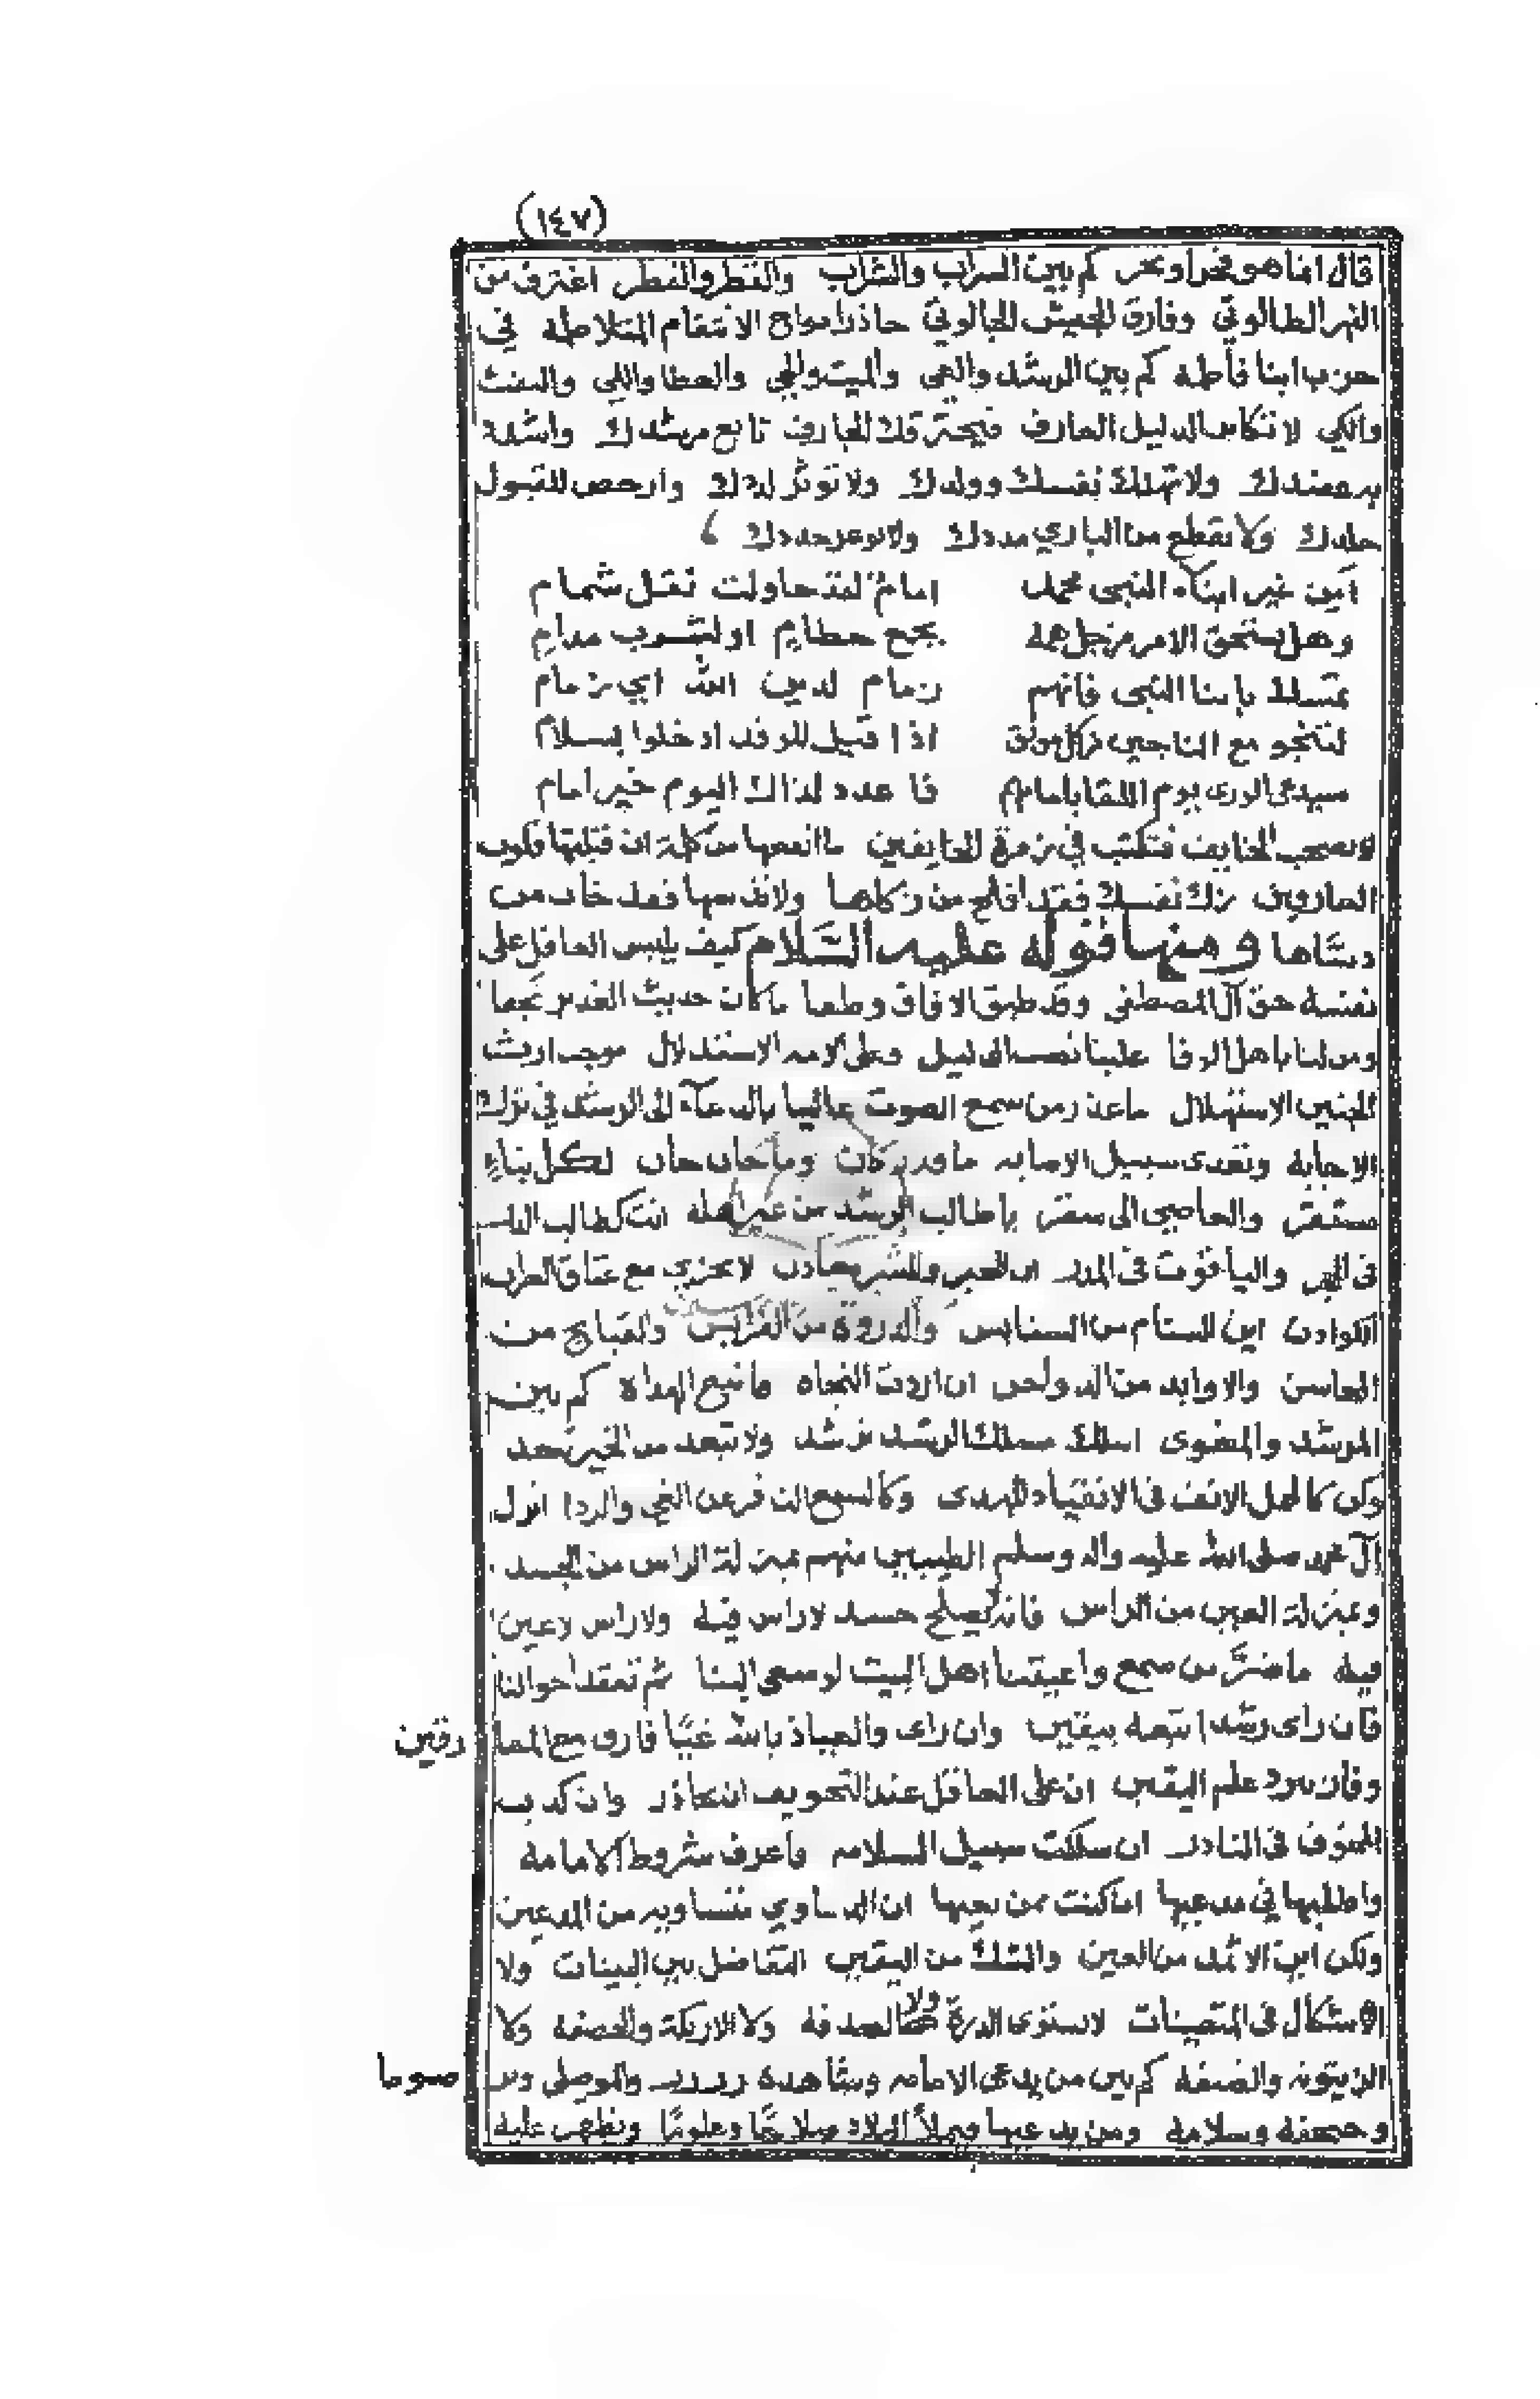 (١٤٧)
قال انما هو فجر او بحر كم بين السراب والشراب والقطر والفطر اغترف من
النهر الطالوتي وفارق الجيش الجالوتي حاذر امواج الانتقام المتلاطمه في
حزب ابنا فاطمه كم بين الرشد والغي والميت والحي والعطا واللي والسنت
والكي لا تكاس الدليل العارف قبحة تابع مرشدك واشدد
به عضدك ولا تهلك نفسك وولدك ولا توثر لددك وارحص للقبول
جلدك ولا تقطع من الباري مددك ولا توعر جددك
أمن غير ابناء النبي محمد امام لقد حاولت نقل شمام
وهل يستحق الامر من جل همه بجمع حطام او لشرب مدام
تمسك بابنا النبي فانهم زمام لدين الله اي زمام
لتنجو مع الناجين من كل موبق اذا قيل للوفد ادخلوا بسلام
سيدعى الورى يوم اللقا بامامهم فاعدد لذاك اليوم خير امام
الخايف فتكتب في زمرة الخايفين ما انفعها من كلمة ان قبلتها قلوب
العارفين زك نفسك فقد افلح من زكاها ولا تدسها فقد خاب من
دسَّاها ومنها قوله عليه السَّلام كيف يلبس العاقل على
نفسه حق آل المصطفى وقد طبق الافاق وطما ما كان حديث الغدير
ومن لنا باهل الوفا علينا نصب الدليل وعلى الامه الاستدلال موجب ارث
الجنين الاستهلال ما عذر من سمع الصوت عاليا بالدعآء الى الرشد في ترك
الاجابة وتعدى سبيل الاصابه ما قدر كان وما حان حان لكل نباءٍ
مستقر والعاصي الى سقر يا طالب الرشد من غير اهله انت كطالب
في والياقوت في المدر لا تجري مع عتاق العراب
الكوادن اين السنام من السنابس والذروة من الفراسن والقبايح من
المحاسن والاوابد من الدواجن ان اردت النجاه فاتبع الهداه كم بين
المرشد والمغوي اسلك مسلك الرشد ترشد ولا تبعد من الخير تبعد
وكن كالجمل الانف في الانقياد للهدى عن الغي والردا انزل
آل محمد صلى الله عليه واله وسلم الطيبين منهم بمنزلة الراس من الجسد
وبمنزلة العين من الراس فانه لا يصلح جسد لا راس فيه ولا راس لا عين
فيه ما ضرَّ من سمع واعيتنا اهل البيت لو سعى الينا ثم تفقد احوالنا
فان راى رشدا اتبعه بيقين وان راى والعياذ بالله غيًّا فارق مع المفا رقين
وفاز ببرد علم اليقين ان على العاقل عند التخويف ان يحاذر وان كذب
المخوف في النادر ان سلكت سبيل السلامه واعرف شروط الامامه
واطلبها في مدعيها ان كنت ممن يعيها ان الدعاوي متساويه من المدعين
ولكن اين الاثمد من العين والشك من اليقين التفاضل بين البينات ولا
الاشكال في المتعينات لا تستوى الدرة ولا الصدفه ولا الاريكة والحصفه ولا
الزيتونه والضعفه كم بين من يدعي الامامه وشاهده والموصلي صوما
وحصفه وسلامه ومن يدعيها ويملأ البلاد صلاحًا وعلومًا وتظهر عليه